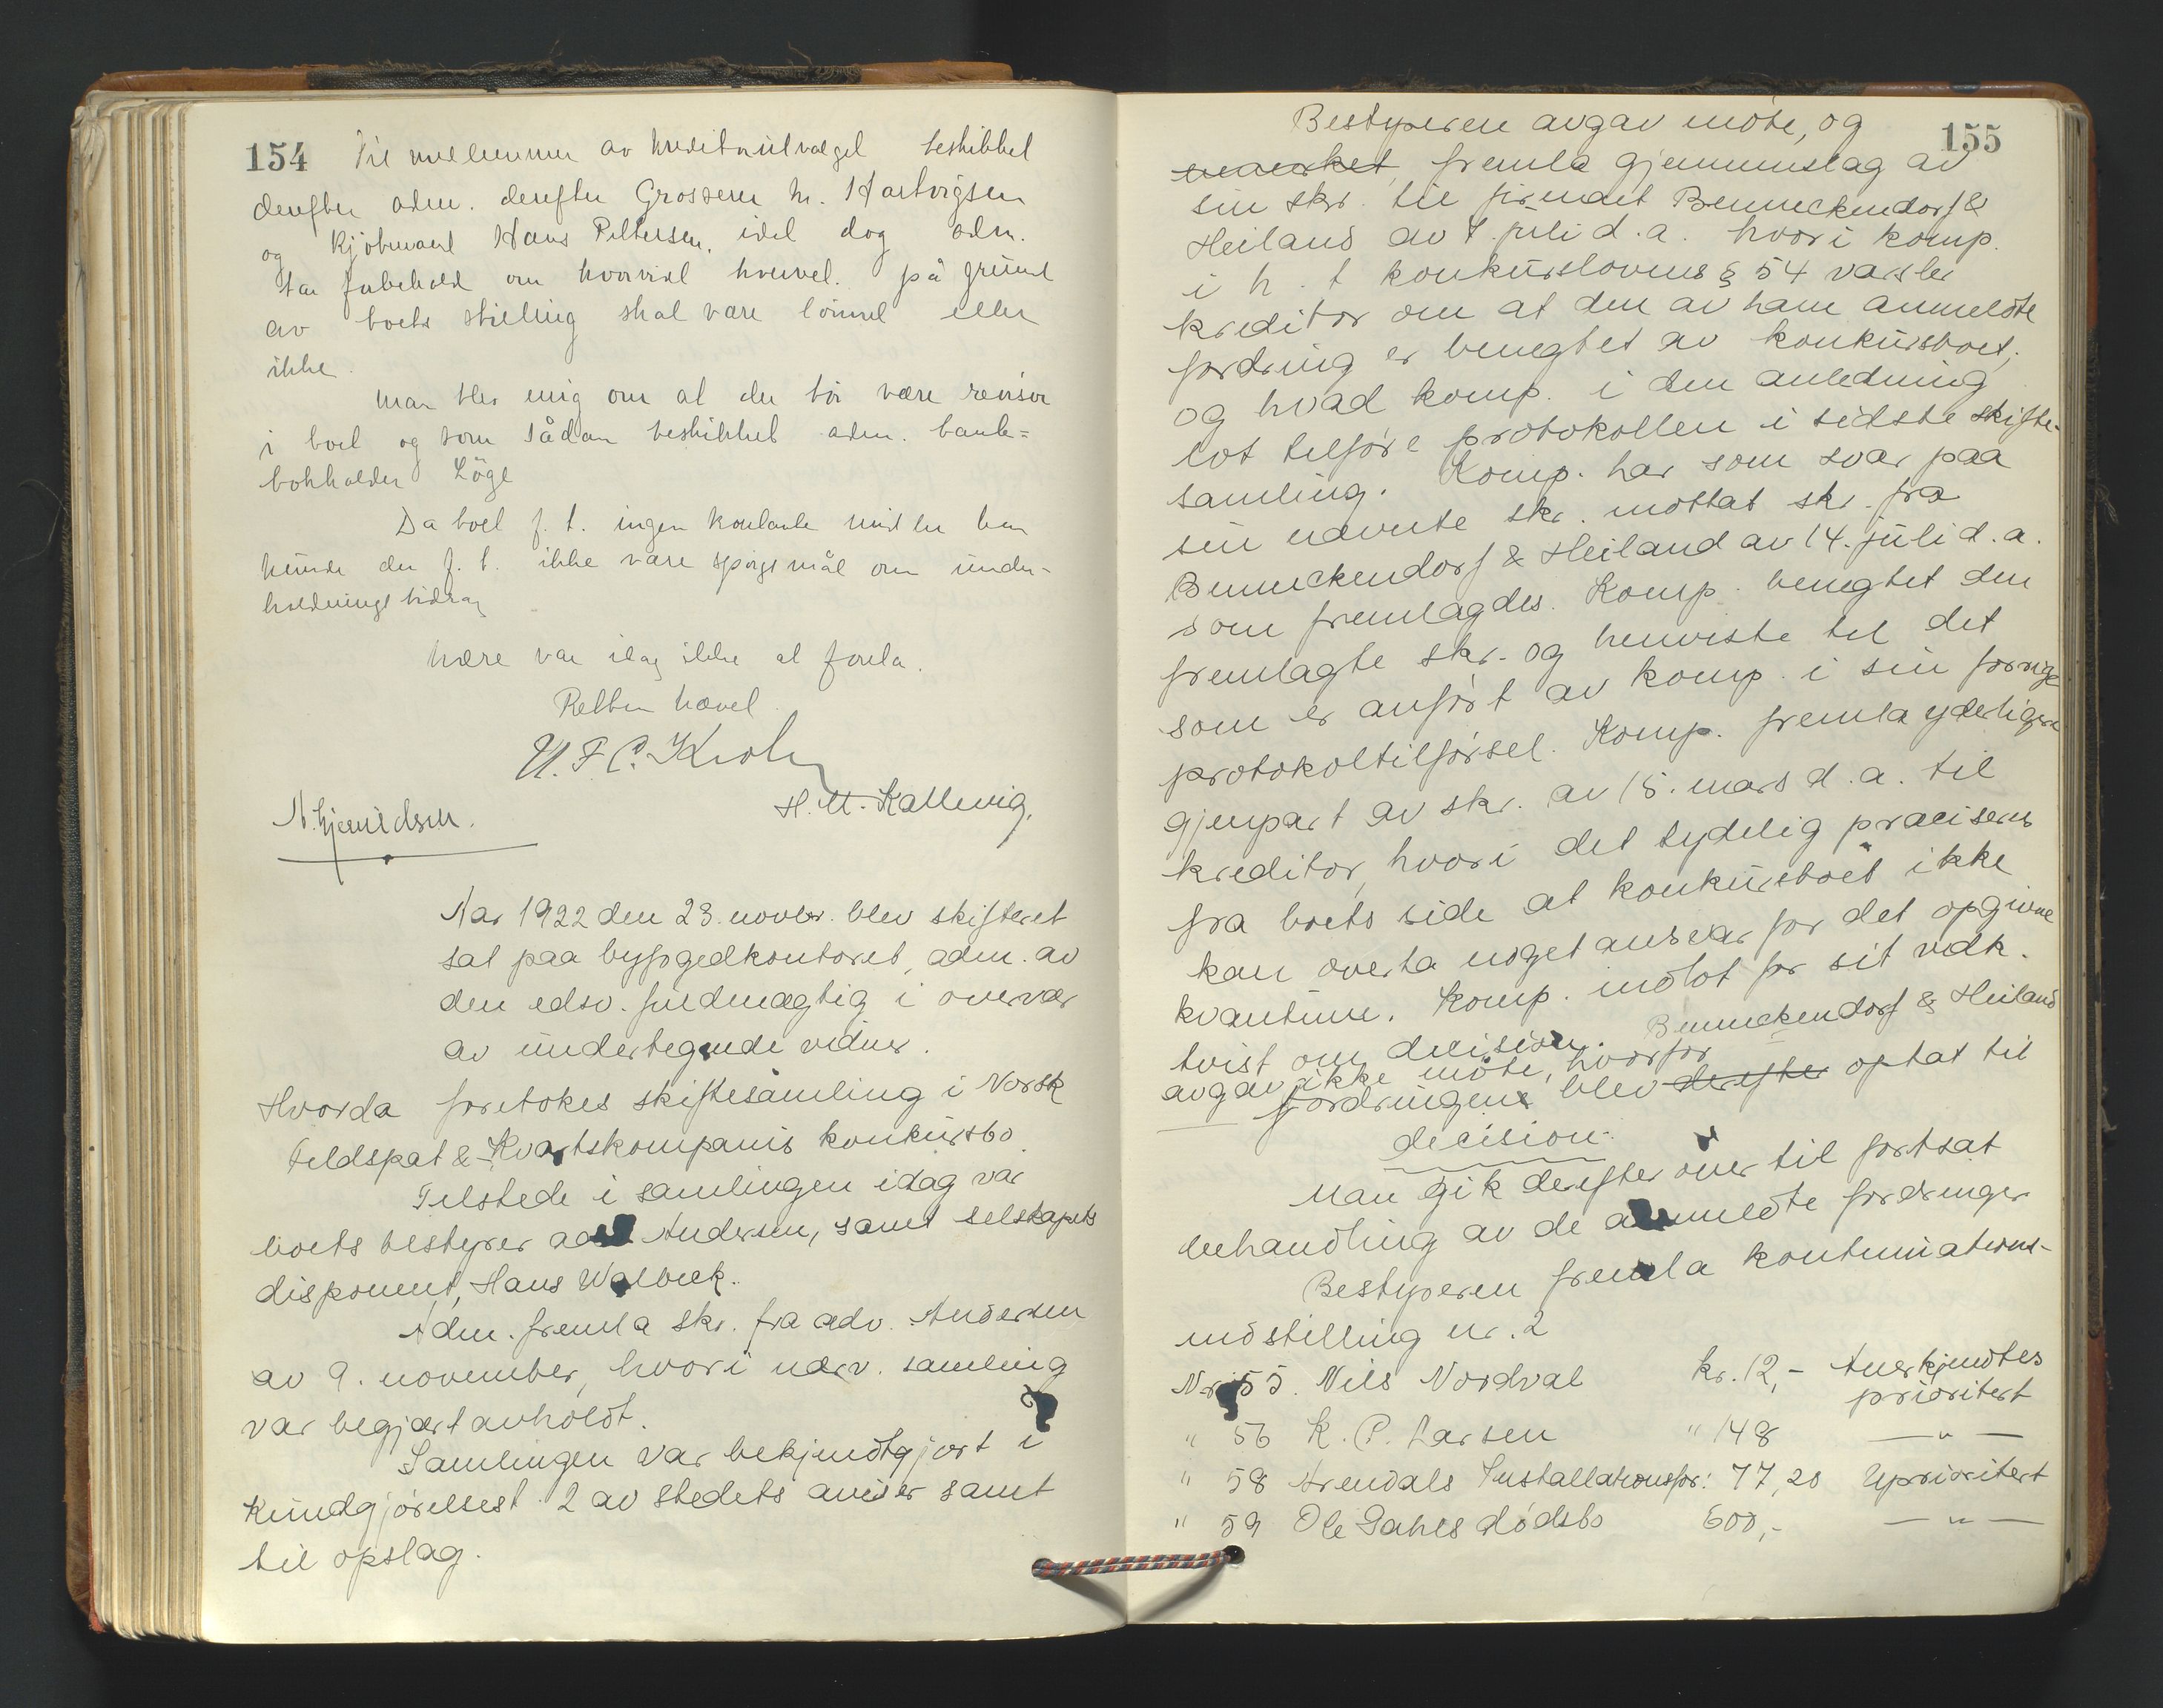 154 Til medlemmer av kreditorutvalget beskikket
derefter adm. derefter Grosserer hr. Hartvigsen
og Kjöbmand Hans Pettersen, idet dog adm.
tar forbehold om hvorvidt hvervet på grund
av boets stilling skal være lönnet eller
ikke.
Man blev enig om at der bör være revisor
i boet og som sådan beskikket adm. bank=
bokholder Löge
Da boet f. t. ingen kontante midler har
kunde der f. t. ikke være spörgsmål om under-
holdningsbidrag
Mere var idag ikke at foreta.
Retten hævet.
N. F. C. Krohn
H. M. Kallevig.
Aar 1922 den 23. novbr. blev skifteret
sat paa byfogedkontoret, adm. av
den edsv. fuldmægtig i overvær
av undertegnede vidner.
Hvorda foretokes skiftesamling i Norsk
Feldspat & Kvartskompanis konkursbo
Tilstede i samlingen idag var
boets bestyrer Andersen, samt selskapets
disponent, Hans Walbeck.
Adm. fremla skr. fra adv. Andersen
av 9. november, hvori nærv. samling
var begjært avholdt.
Samlingen var bekjendtgjort i
Kundgjörelsest. 2 av stedets aviser samt
til opslag.
155
Bestyreren avgav möte, og
fremla gjennemslag av
sin skr. til firmaet Benneckendorf &
Heiland av 7. juli d. a. hvori komp.
i h. t konkurslovens § 54 varsler
kreditor om at den av ham anmeldte
fordring er benegtet av konkursboet,
og hvad komp. i den anledning
lot tilföre protokollen i sidste skifte-
samling. Komp. har som svar paa
sin nævnte skr. mottat skr. fra
Benneckendorf & Heiland av 14. juli d. a.
som fremlagdes. Komp. benegtet den
fremlagte skr. og henviste til det
som er anfört av komp. i sin forrige
protokoltilförsel. Komp. fremla yderligere
gjenpart av skr. av 15. mars d. a. til
kreditor, hvori det tydelig præciseres
fra boets side at konkursboet ikke
kan overta noget ansvar for det opgivne
kvantum. Komp. indlot for sit vedk.
tvist om decision. Benneckendorf & Heiland
avgav ikke möte, hvorfor
fordringen blev derefter optat til
decision.
Man gik derefter over til fortsat
behandling av de anmeldte fordringer
Bestyreren fremla kontinuations-
indstilling nr. 2
Nr 55. Nils Nordval kr. 12,- Anerkjendtes
prioritert
" 56 K. P. Larsen " 148 — " —
" 58 Arendals Installationsfor: 77,20 Uprioritert
" 59 Ole Dahls dödsbo 600,- — " —